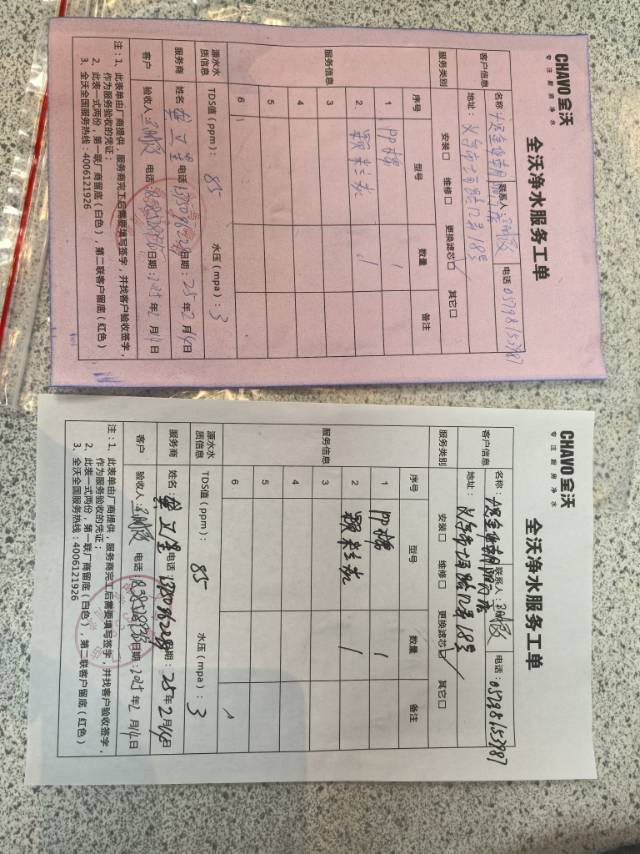 CHAVO全沃
专注厨房净水
全沃净水服务工单
客户信息 名称: 联系人: 电话:057981537987
地址: 18号
服务类别 安装□ 维修□ 更换滤芯□ 其它□
服务信息 序号 型号 数量 备注
1 PP棉 1
2 颗粒炭 1
3
4
5
6
源水水质信息 TDS值(ppm): 85 水压(mpa): 3
服务商 姓名: 电话: 日期: 25年2月14日
客户 验收人: 电话: 日期: 2025年2月14日
注:1、此表单由厂商提供,服务商完工后需要填写签字,并找客户验收签字,
作为服务验收的凭证;
2、此表一式两份,第一联厂商留底(白色),第二联客户留底(红色)
3、全沃全国服务热线:4006121926
CHAVO全沃
专注厨房净水
全沃净水服务工单
客户信息 名称: 联系人: 电话:057981537987
地址: 18号
服务类别 安装□ 维修□ 更换滤芯□ 其它□
服务信息 序号 型号 数量 备注
1 PP棉 1
2 颗粒炭 1
3
4
5
6
源水水质信息 TDS值(ppm): 85 水压(mpa): 3
服务商 姓名: 电话: 日期: 25年2月14日
客户 验收人: 电话: 日期: 2025年2月14日
注:1、此表单由厂商提供,服务商完工后需要填写签字,并找客户验收签字,
作为服务验收的凭证;
2、此表一式两份,第一联厂商留底(白色),第二联客户留底(红色)
3、全沃全国服务热线:4006121926